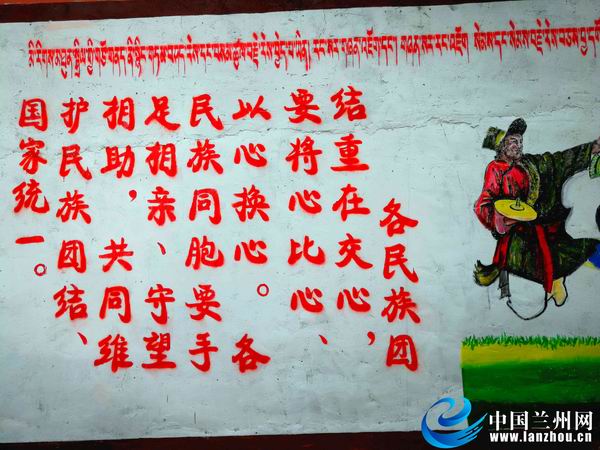 མི་རིགས་མཐུན་སྒྲིལ་གྱི་གཙོ་གནད་ནི་སྙིང་
各民族团
结重在交心，
要将心比心、
以心换心。各
民族同胞要手
足相亲、守望
相助，共同维
护民族团结、
国家统一。
中国兰州网
www.lanzhou.cn